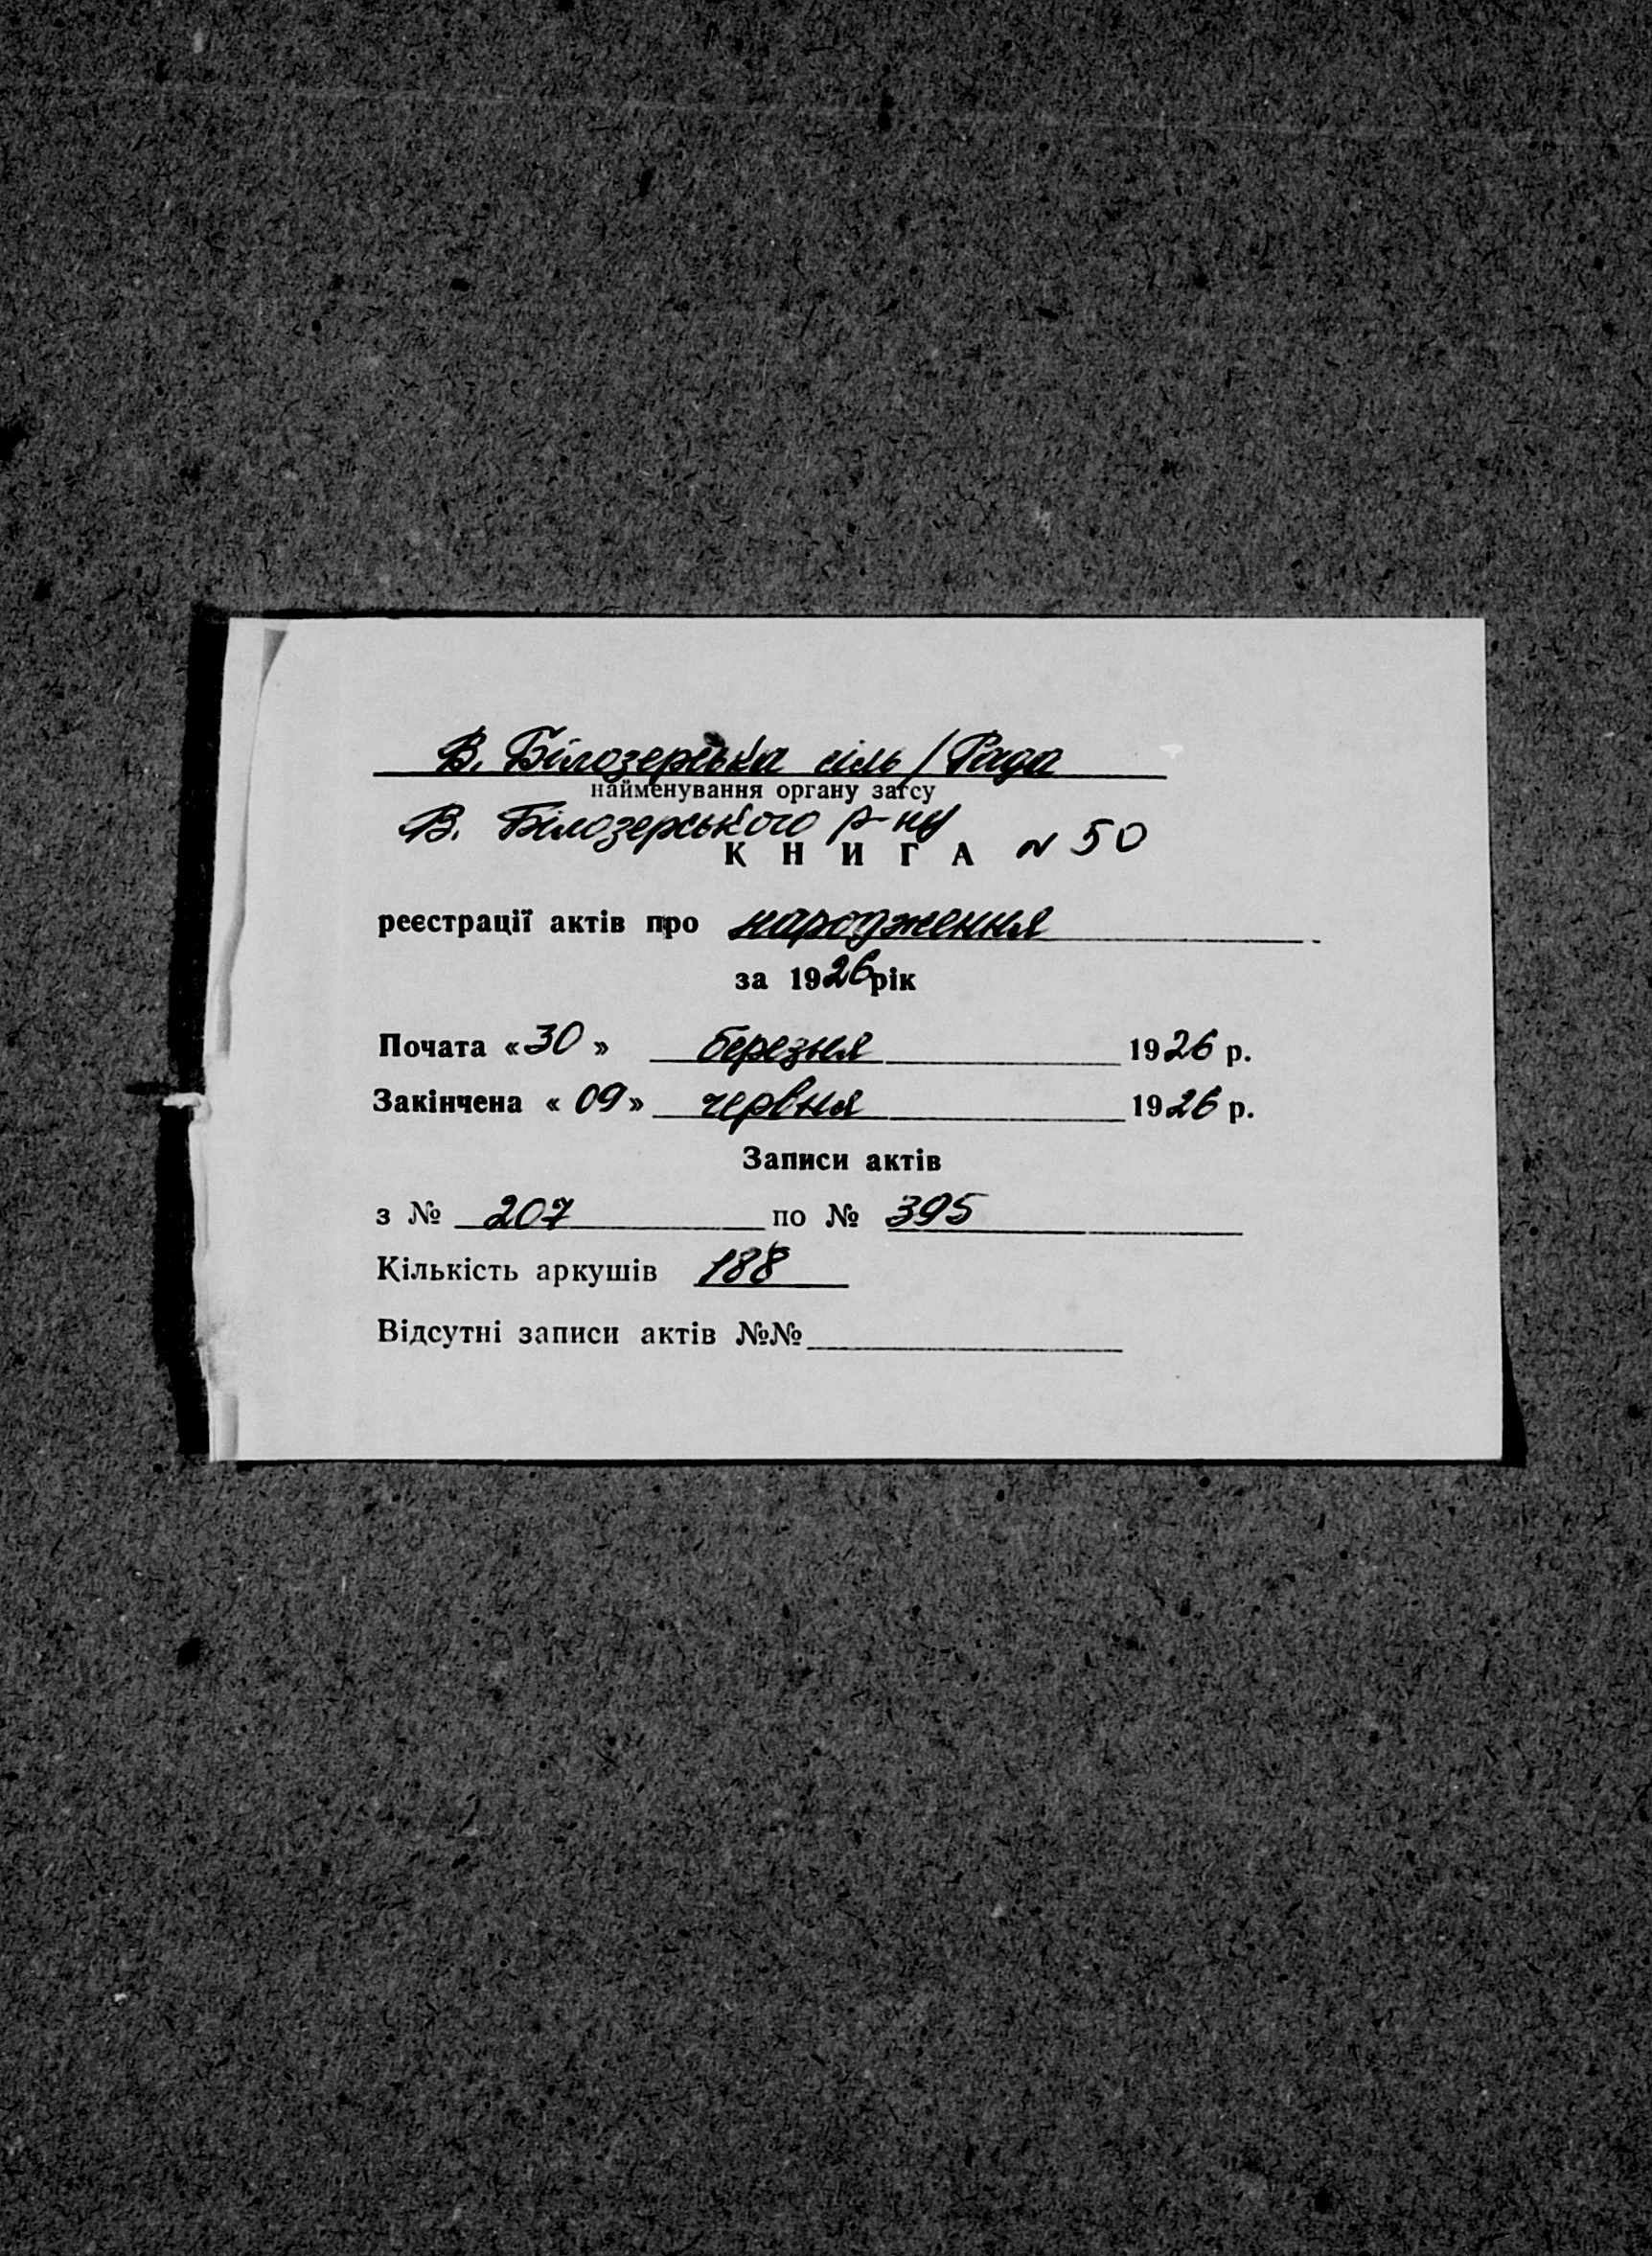 В. Білозерська сіль/Рада
найменування органу загсу
В. Білозерського р-ну
КНИГА № 50
реєстрації актів про народження
за 1926 рік
Почата «30» березня 1926 р.
Закінчена «09» червня 1926 р.
Записи актів
з № 207 по № 395
Кількість аркушів 188
Відсутні записи актів №№